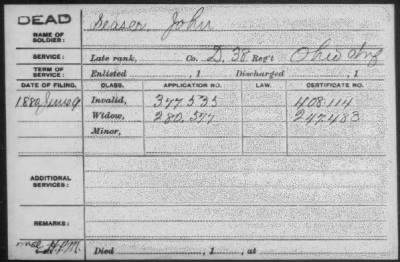 DEAD
NAME OF SOLDIER: Seaser, John
SERVICE: Late rank, Co. D, 38 Reg't Ohio Inf
TERM OF SERVICE: Enlisted , 1 Discharged , 1
DATE OF FILING. CLASS. APPLICATION NO. LAW. CERTIFICATE NO.
1880 June 9 Invalid, 377535 408.114
Widow, 280.577 247.483
Minor,
ADDITIONAL SERVICES:
REMARKS:
Died , 1 , at